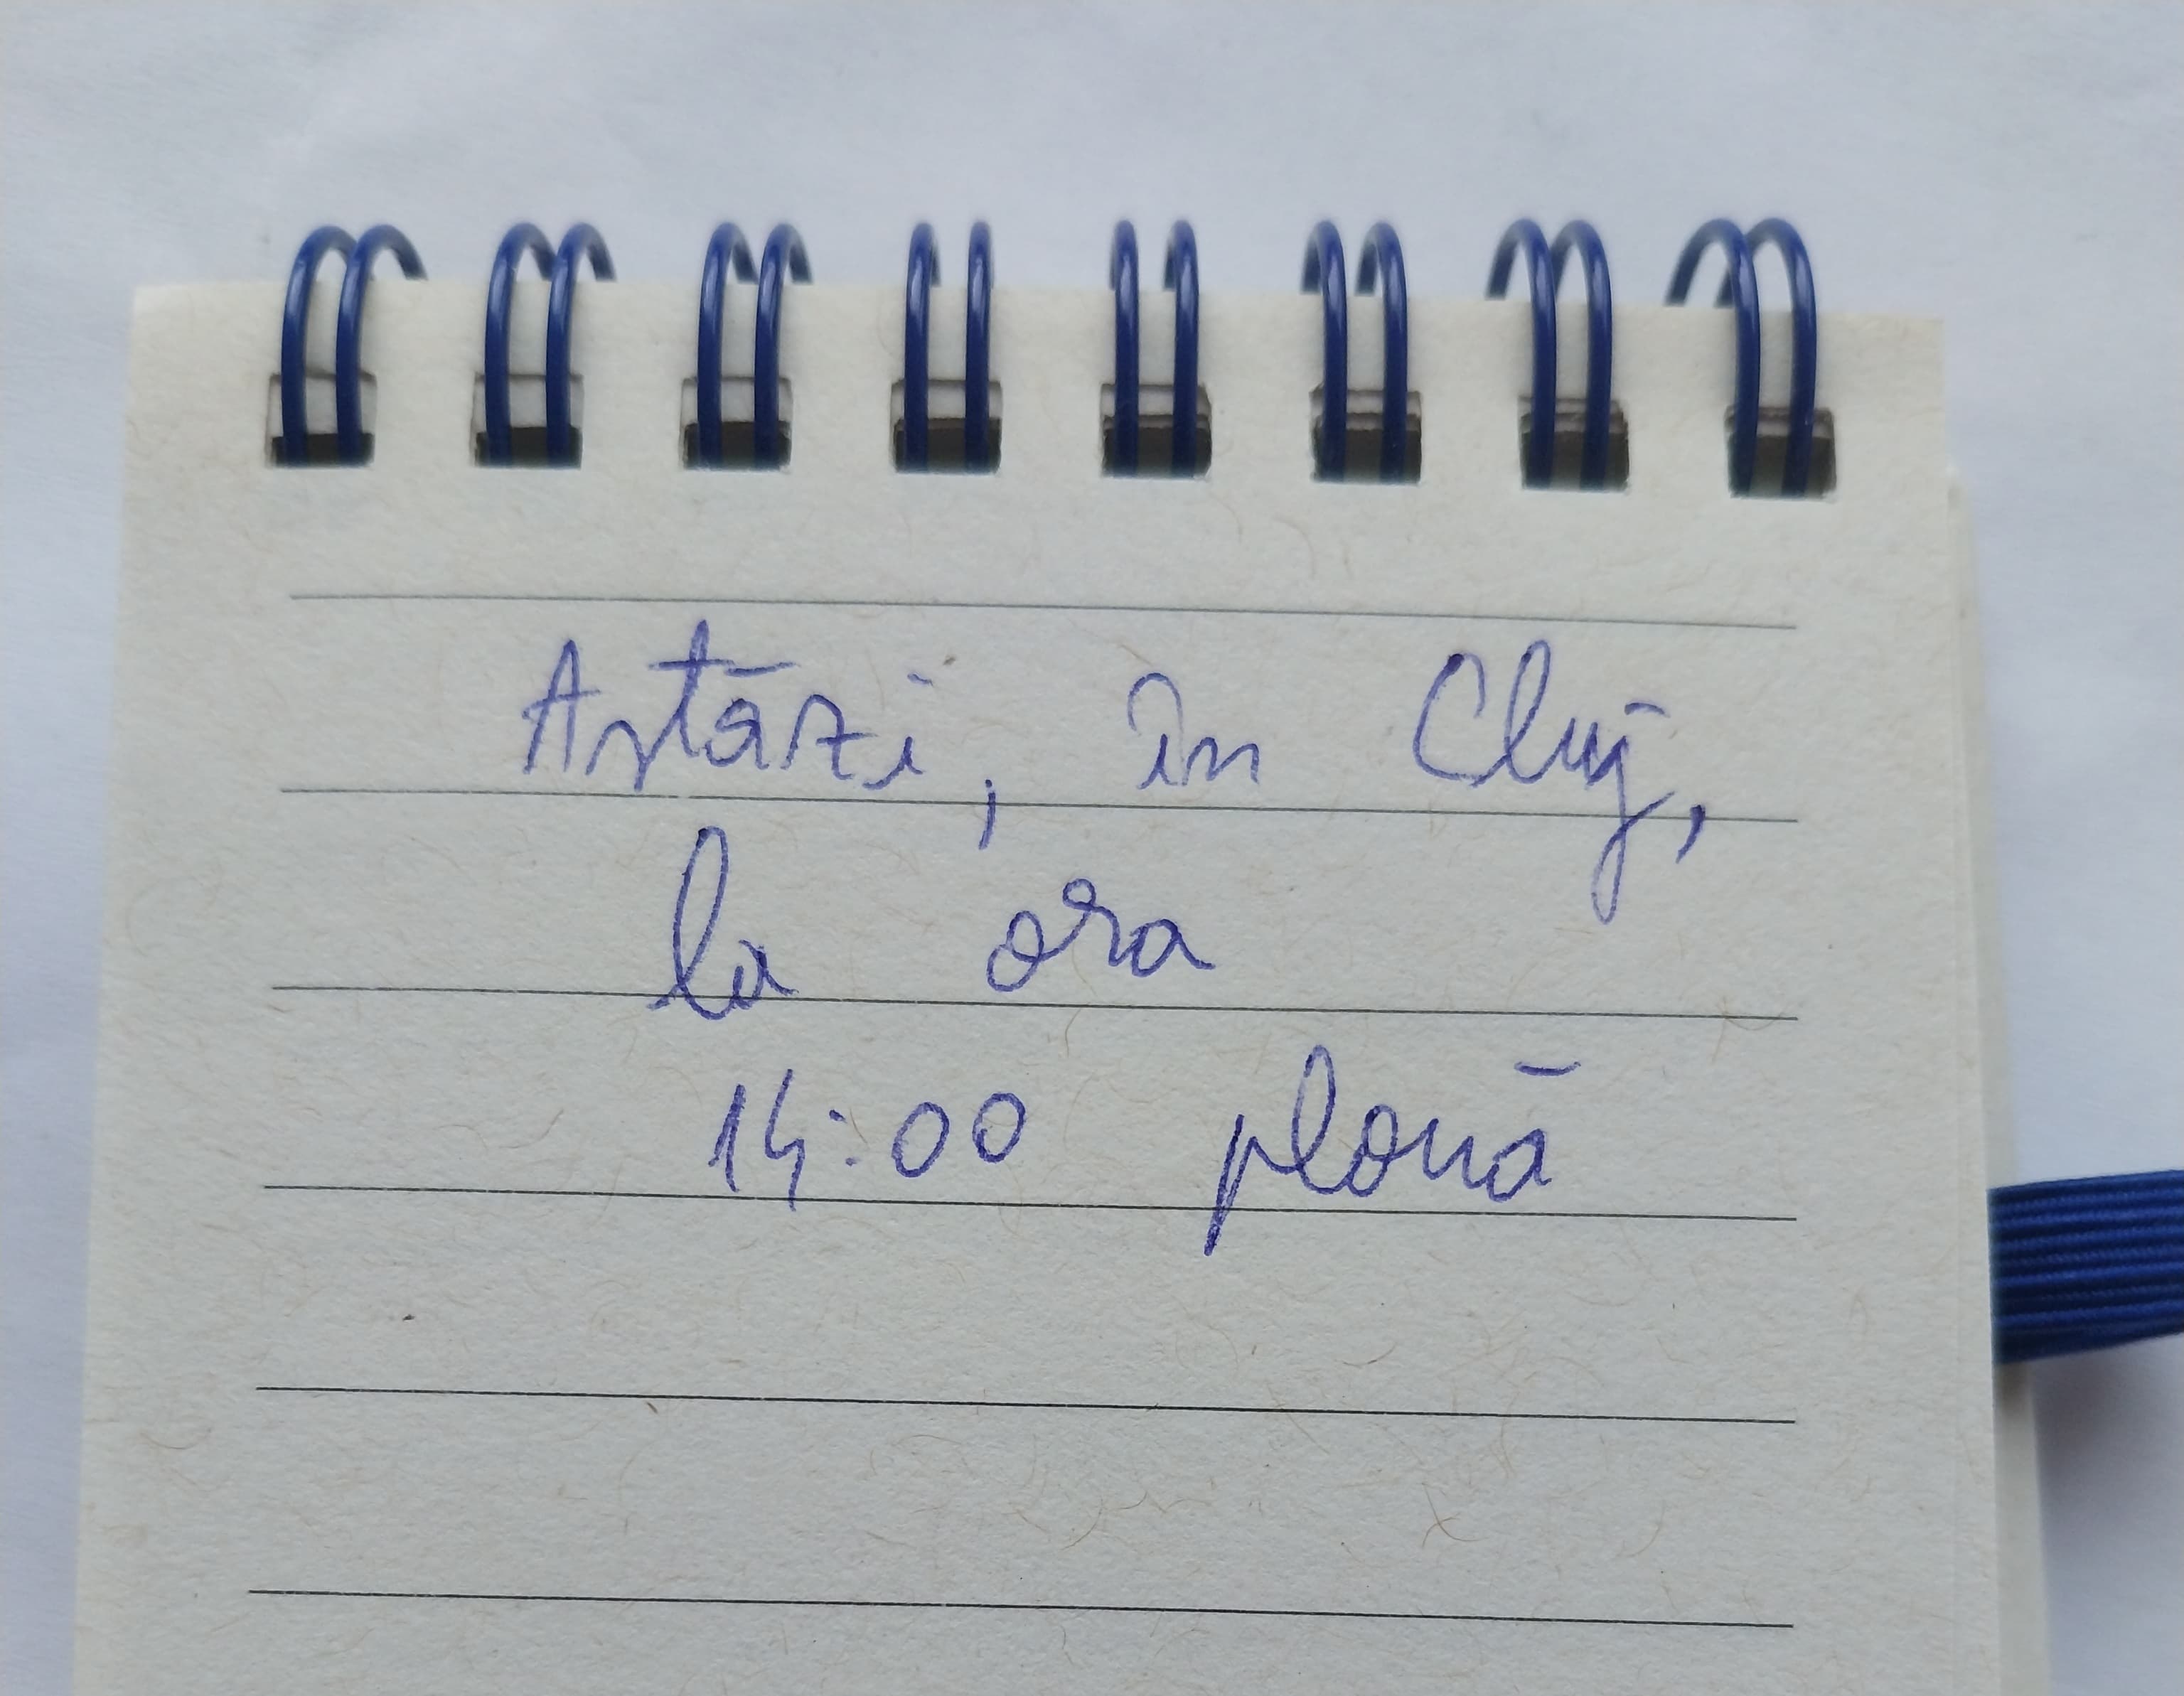 Astăzi, în Cluj,
la ora
14:00 plouă